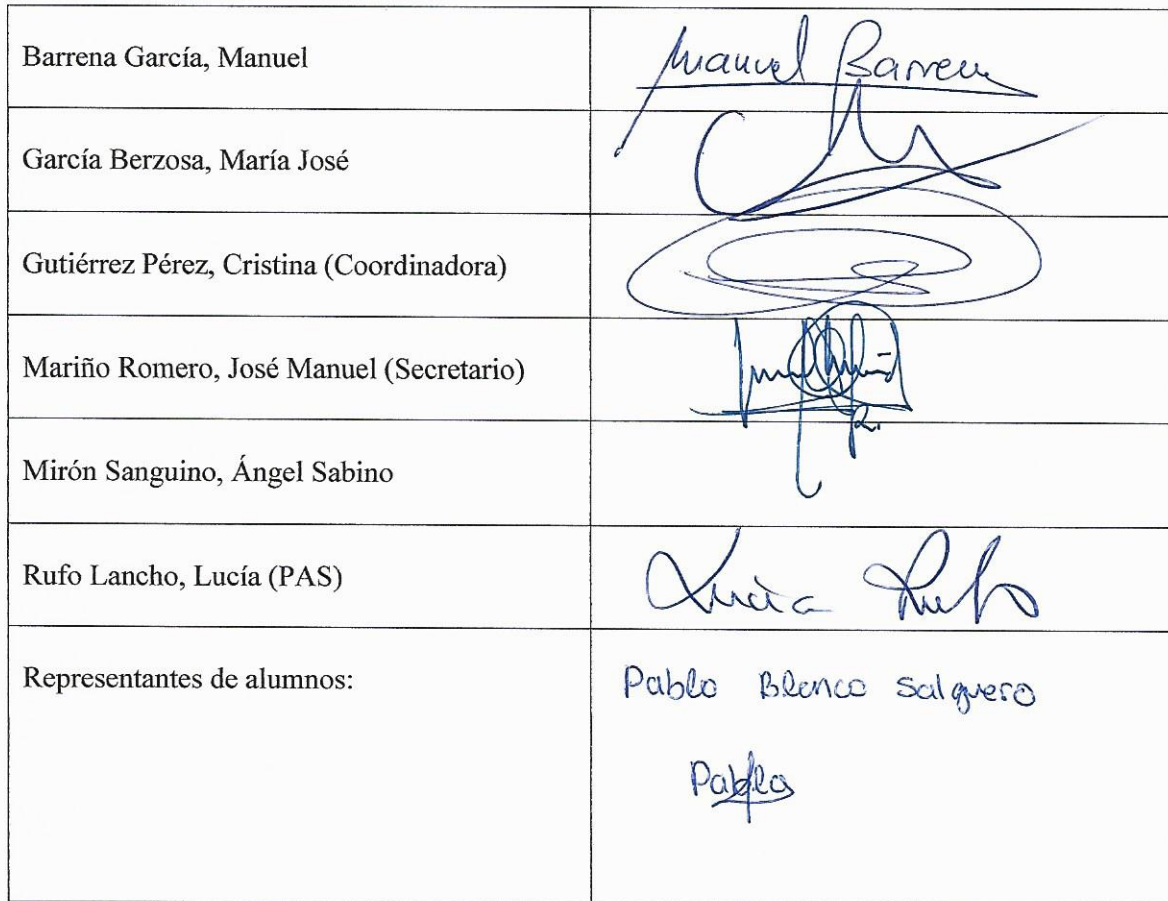 Barrena García, Manuel
Manuel Barrena
García Berzosa, María José
Gutiérrez Pérez, Cristina (Coordinadora)
Mariño Romero, José Manuel (Secretario)
Mirón Sanguino, Ángel Sabino
Rufo Lancho, Lucía (PAS)
Lucía Rufo
Representantes de alumnos:
Pablo Blanco Salguero
Pablo